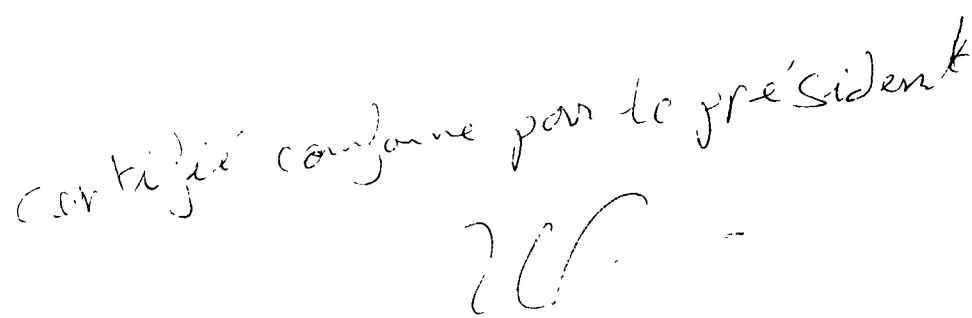 certifié conforme par le président